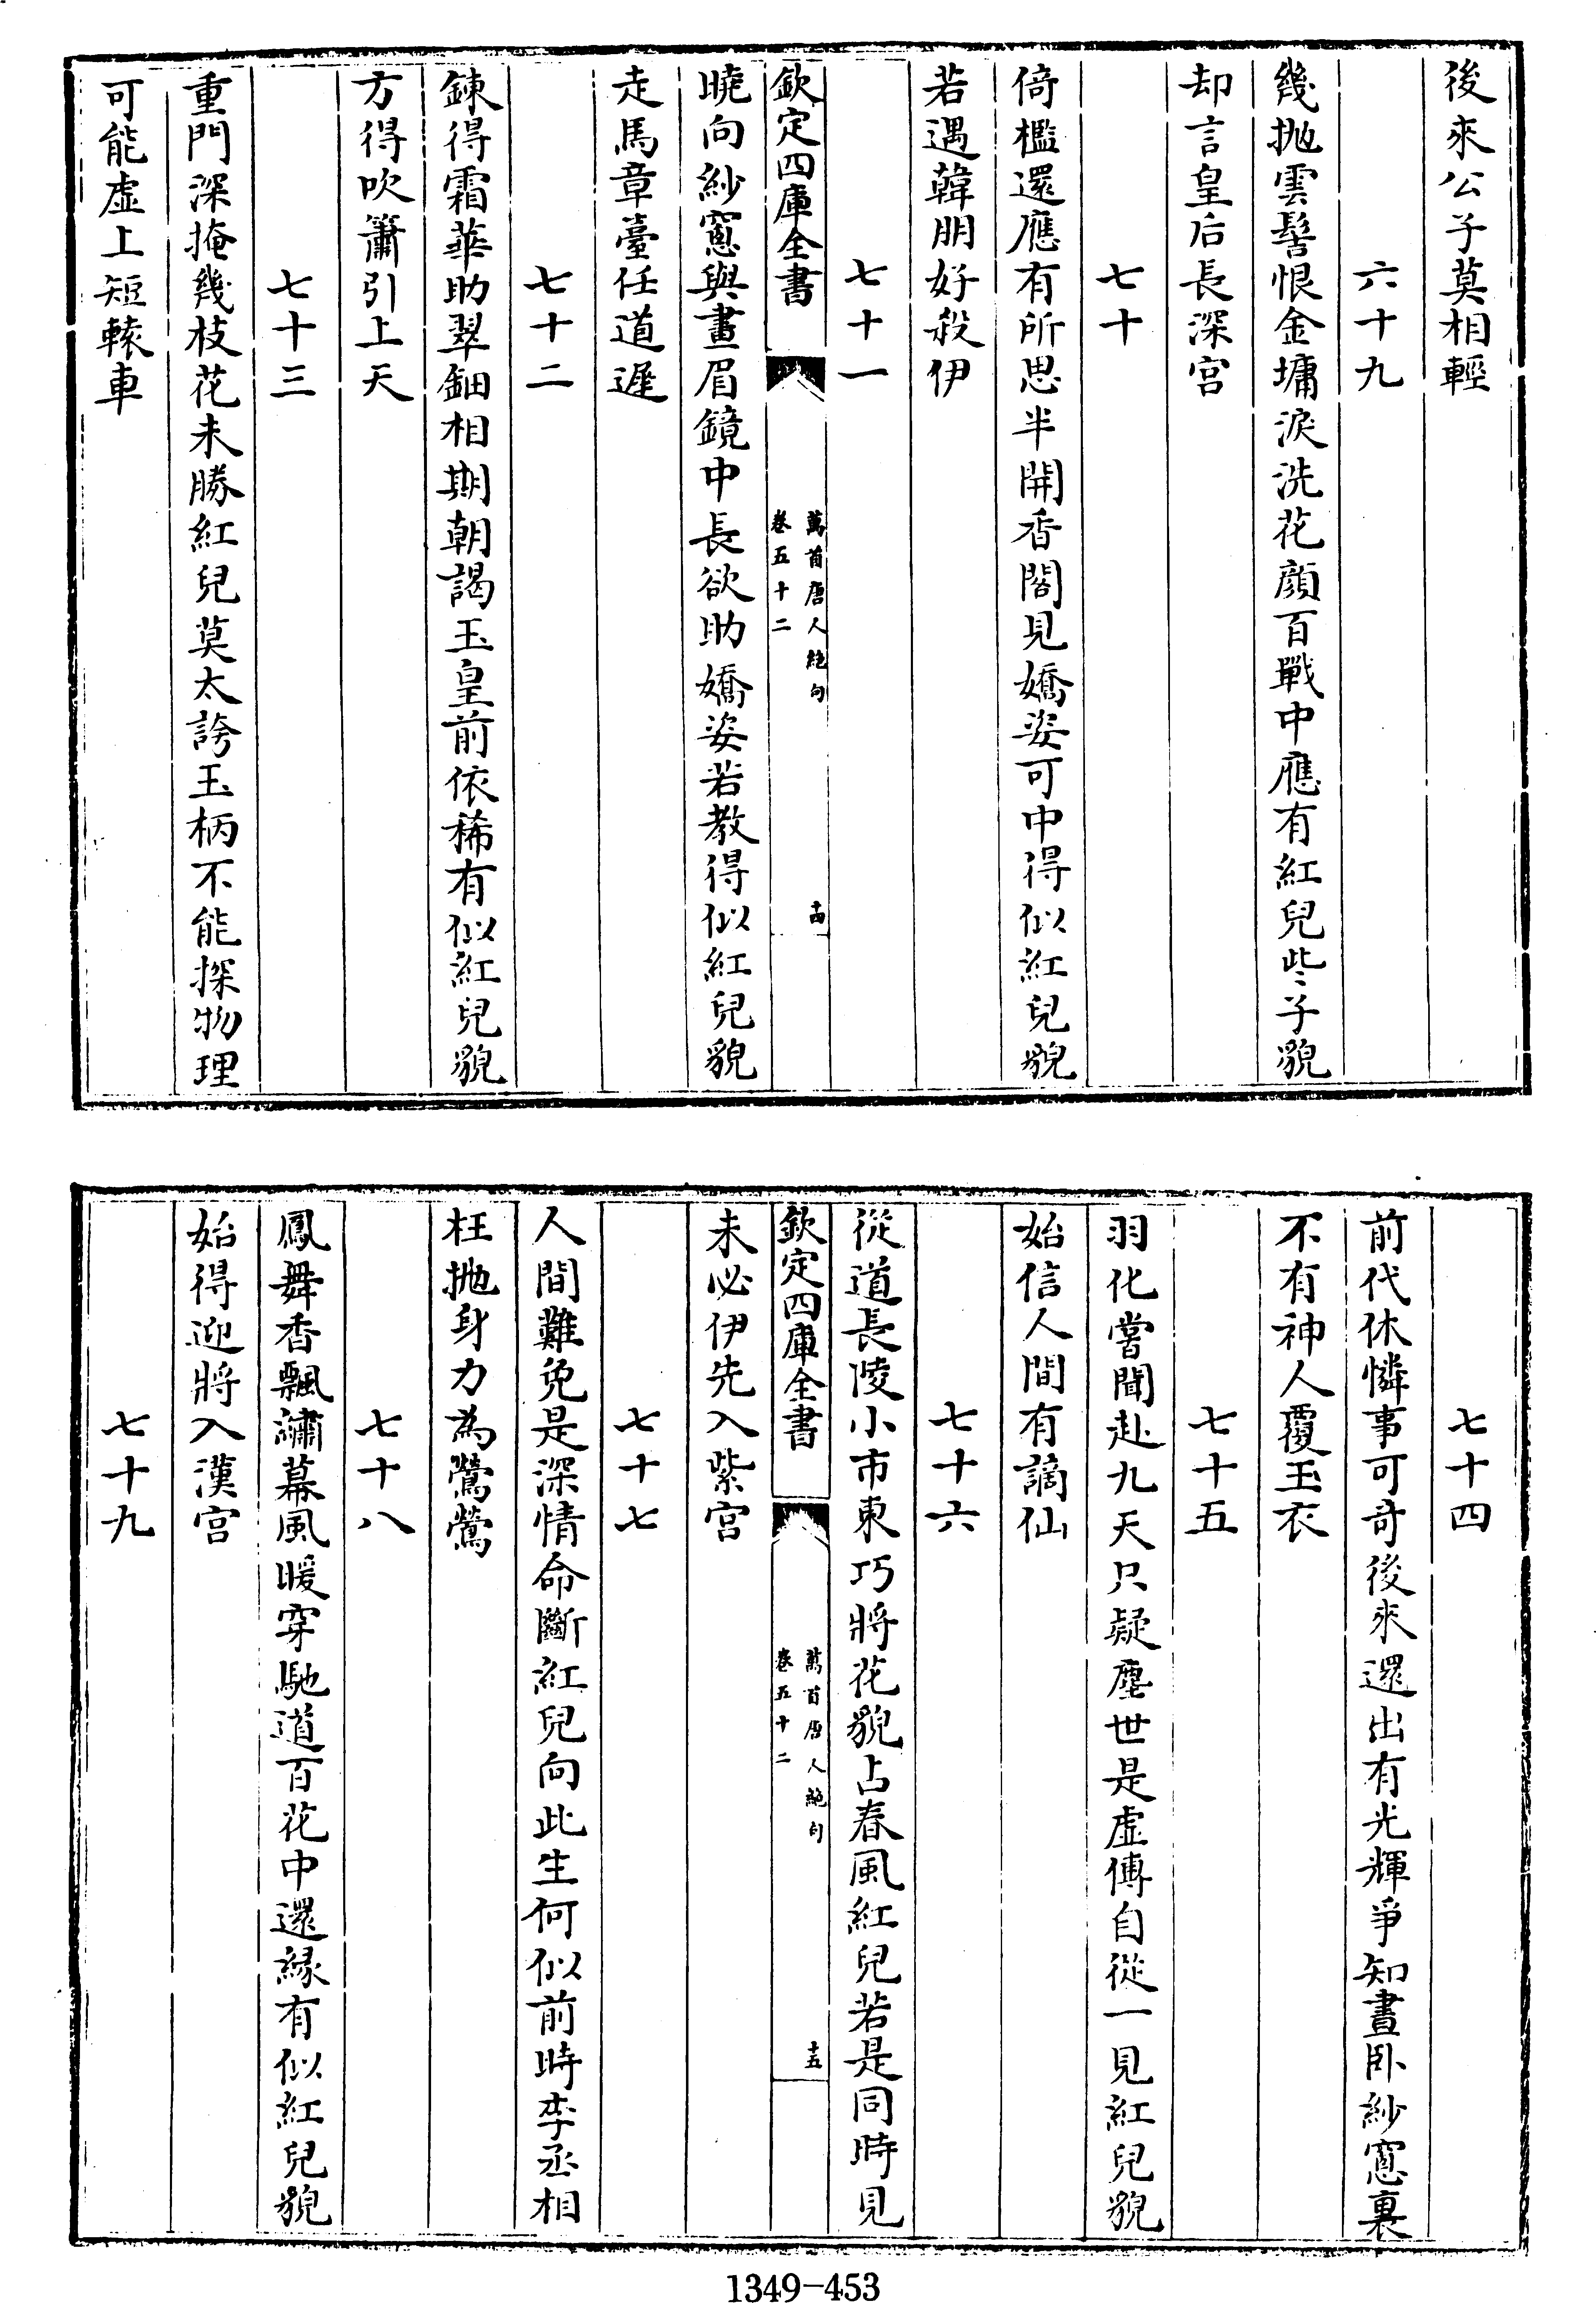 後來公子莫相輕
六十九
幾抛雲髻恨金墉淚洗花顔百戰中應有紅兒些子貌
却言皇后長深宮
七十
倚檻還應有所思半開香閣見嬌姿可中得似紅兒貌
若遇韓朋好殺伊
七十一
欽定四庫全書
萬首唐人絶句
卷五十二
十四
曉向紗窻與畫眉鏡中長欲助嬌姿若教得似紅兒貌
走馬章臺任道遲
七十二
鍊得霜華助翠鈿相期朝謁玉皇前依稀有似紅兒貌
方得吹簫引上天
七十三
重門深掩幾枝花未勝紅兒莫太誇玉柄不能探物理
可能虛上短轅車
七十四
前代休憐事可奇後來還出有光輝爭知晝卧紗窻裏
不有神人覆玉衣
七十五
羽化嘗聞赴九天只疑塵世是虛傳自從一見紅兒貌
始信人間有謫仙
七十六
從道長陵小市東巧將花貌占春風紅兒若是同時見
欽定四庫全書
萬首唐人絶句
卷五十二
十五
未必伊先入紫宮
七十七
人間難免是深情命斷紅兒向此生何似前時李丞相
枉抛身力為鶯鶯
七十八
鳳舞香飄繡幕風暖穿馳道百花中還緣有似紅兒貌
始得迎將入漢宮
七十九
1349-453